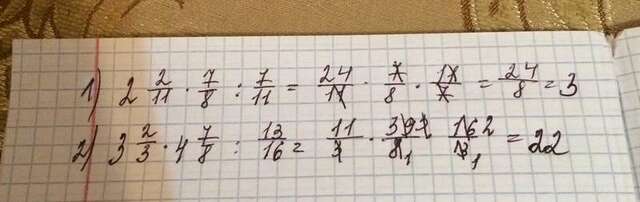 1) 2 2/11 · 7/8 : 7/11 = 24/11 · 7/8 · 11/7 = 24/8 = 3
2) 3 2/3 · 4 7/8 : 13/16 = 11/3 · 39/8 1 162/13 1 = 22